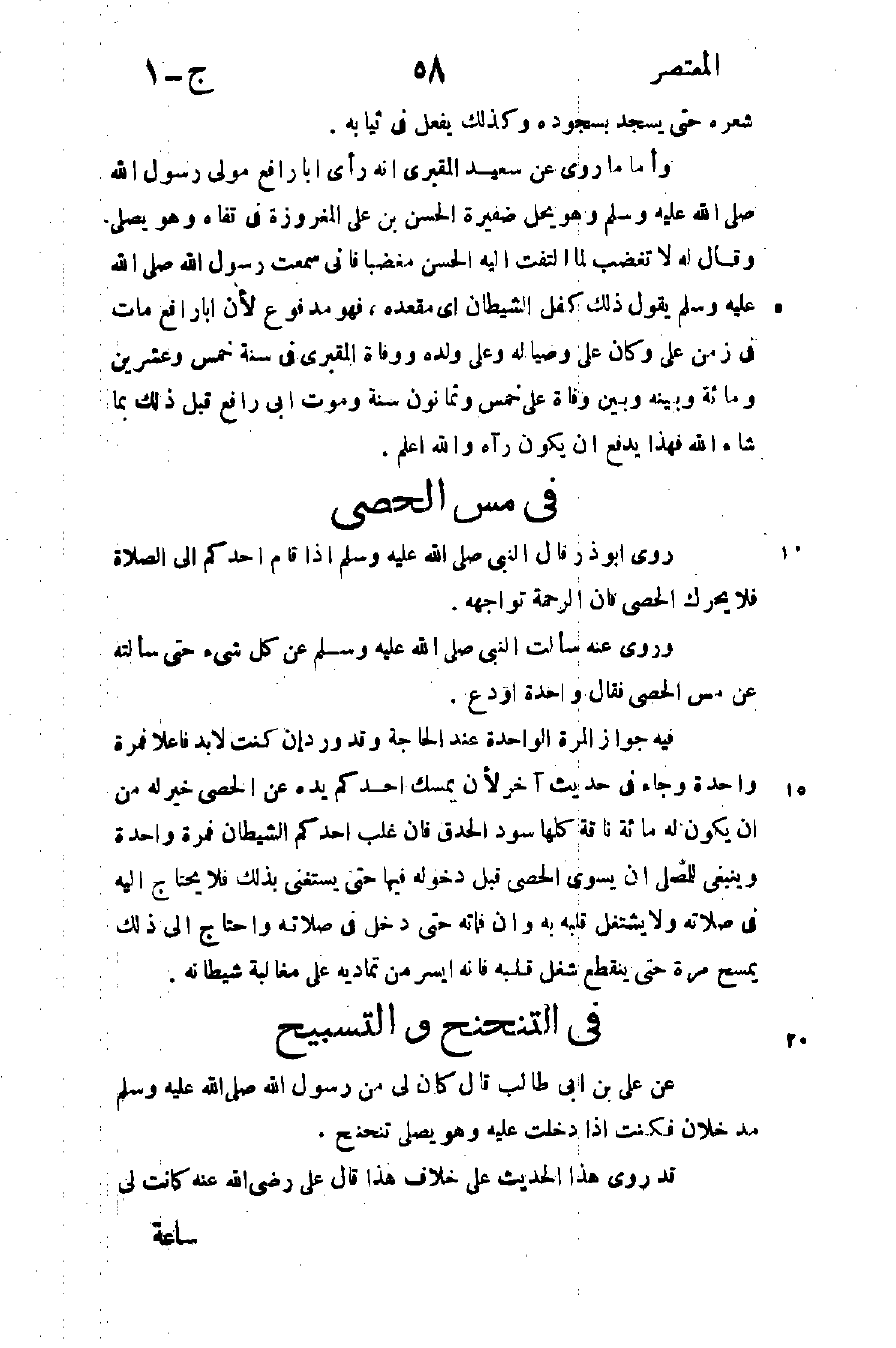 المعتصر ٥٨ ج-١
شعره حتى يسجد بسجوده وكذلك يفعل فى ثيابه .
وأما ماروى عن سعيد المقبرى انه رأى ابا رافع مولى رسول الله
صلى الله عليه وسلم وهو يحل ضفيرة الحسن بن على المغروزة فى تفاه وهو يصلى.
وقال له لا تغضب لما التفت اليه الحسن مغضبا فانى سمعت رسول الله صلى الله
٥ عليه وسلم يقول ذلك كفل الشيطان اى مقعده ، فهو مدفوع لأن ابا رافع مات
فى زمن على وكان على وصيا له وعلى ولده ووفاة المقبرى فى سنة خمس وعشرين
ومائة وبينه وبين وفاة على خمس وثمانون سنة وموت ابى رافع قبل ذلك بما
شاء الله فهذا يدفع ان يكون رآه والله اعلم .
فى مس الحصى
١٠ روى ابوذر قال النبى صلى الله عليه وسلم اذا قام احدكم الى الصلاة
فلا يحرك الحصى فان الرحمة تواجهه .
وروى عنه سألت النبى صلى الله عليه وسلم عن كل شىء حتى سألته
عن مس الحصى فقال واحدة اودع .
فيه جواز المرة الواحدة عند الحاجة وقد ورد إن كنت لابد فاعلا فمرة
١٥ واحدة وجاء فى حديث آخر لأن يمسك احدكم يده عن الحصى خير له من
ان يكون له مائة ناقة كلها سود الحدق فان غلب احدكم الشيطان فمرة واحدة
وينبغى للمصلى ان يسوى الحصى قبل دخوله فيها حتى يستغنى بذلك فلا يحتاج اليه
فى صلاته ولا يشتغل قلبه به وان فاته حتى دخل فى صلاته واحتاج الى ذلك
يمسح مرة حتى ينقطع شغل قلبه فانه ايسر من تماديه على مغالبة شيطانه .
٢٠ فى التنحنح و التسبيح
عن على بن ابى طالب قال كان لى من رسول الله صلى الله عليه وسلم
مدخلان فكنت اذا دخلت عليه وهو يصلى تنحنح .
قد روى هذا الحديث على خلاف هذا قال على رضى الله عنه كانت لى
ساعة